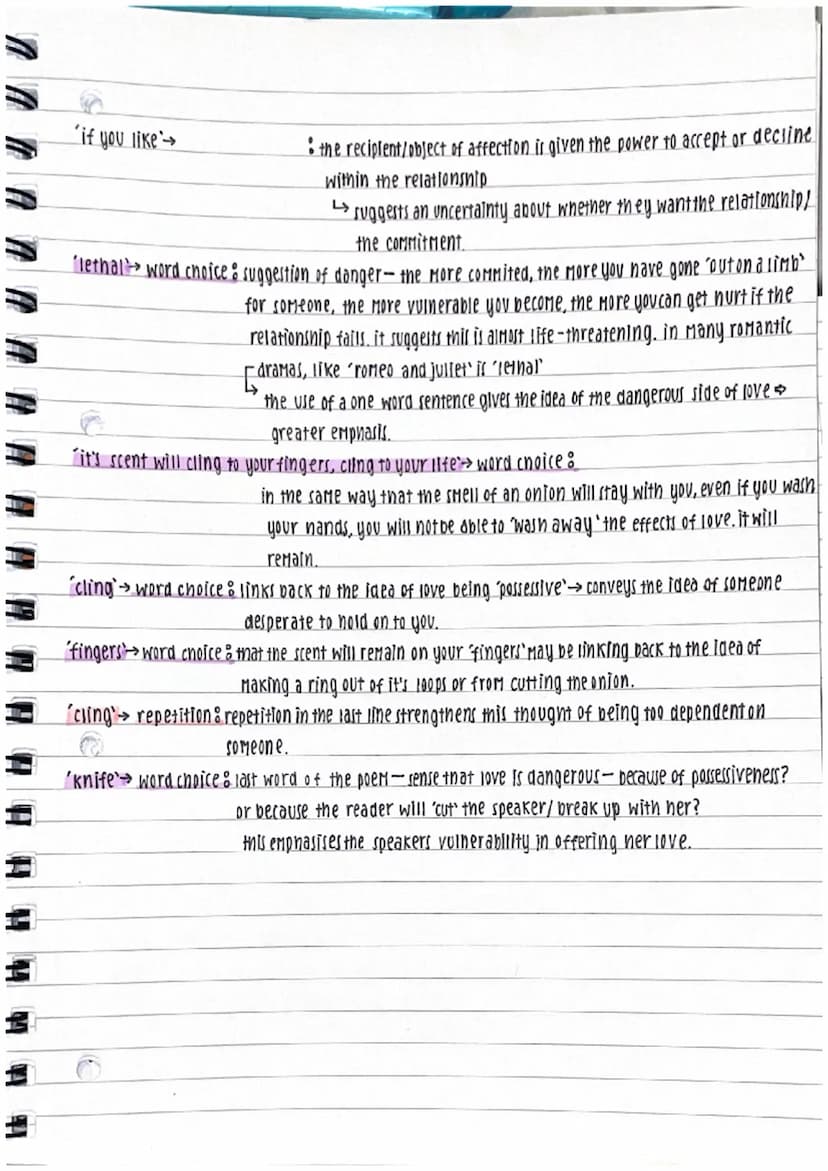 'if you like'→ : the recipient/object of affection is given the power to accept or decline
within the relationship
↳ suggests an uncertainty about whether they want the relationship/
the commitment.
'lethal'→ word choice: suggestion of danger – the more commited, the more you have gone 'out on a limb'
for someone, the more vulnerable you become, the more you can get hurt if the
relationship fails. it suggests this is almost life-threatening. in many romantic
dramas, like 'romeo and juliet' is 'lethal'
↳ the use of a one word sentence gives the idea of the dangerous side of love ⇒
greater emphasis.
'it's scent will cling to your fingers, cling to your life'→ word choice:
in the same way that the smell of an onion will stay with you, even if you wash
your hands, you will not be able to 'wash away' the effects of love. it will
remain.
'cling'→ word choice: links back to the idea of love being 'possessive'→ conveys the idea of someone
desperate to hold on to you.
'fingers'→ word choice: that the scent will remain on your 'fingers' may be linking back to the idea of
making a ring out of it's loops or from cutting the onion.
'cling'→ repetition: repetition in the last line strengthens this thought of being too dependent on
someone.
'knife'→ word choice: last word of the poem – sense that love is dangerous – because of possessiveness?
or because the reader will 'cut' the speaker/ break up with her?
this emphasises the speakers vulnerability in offering her love.